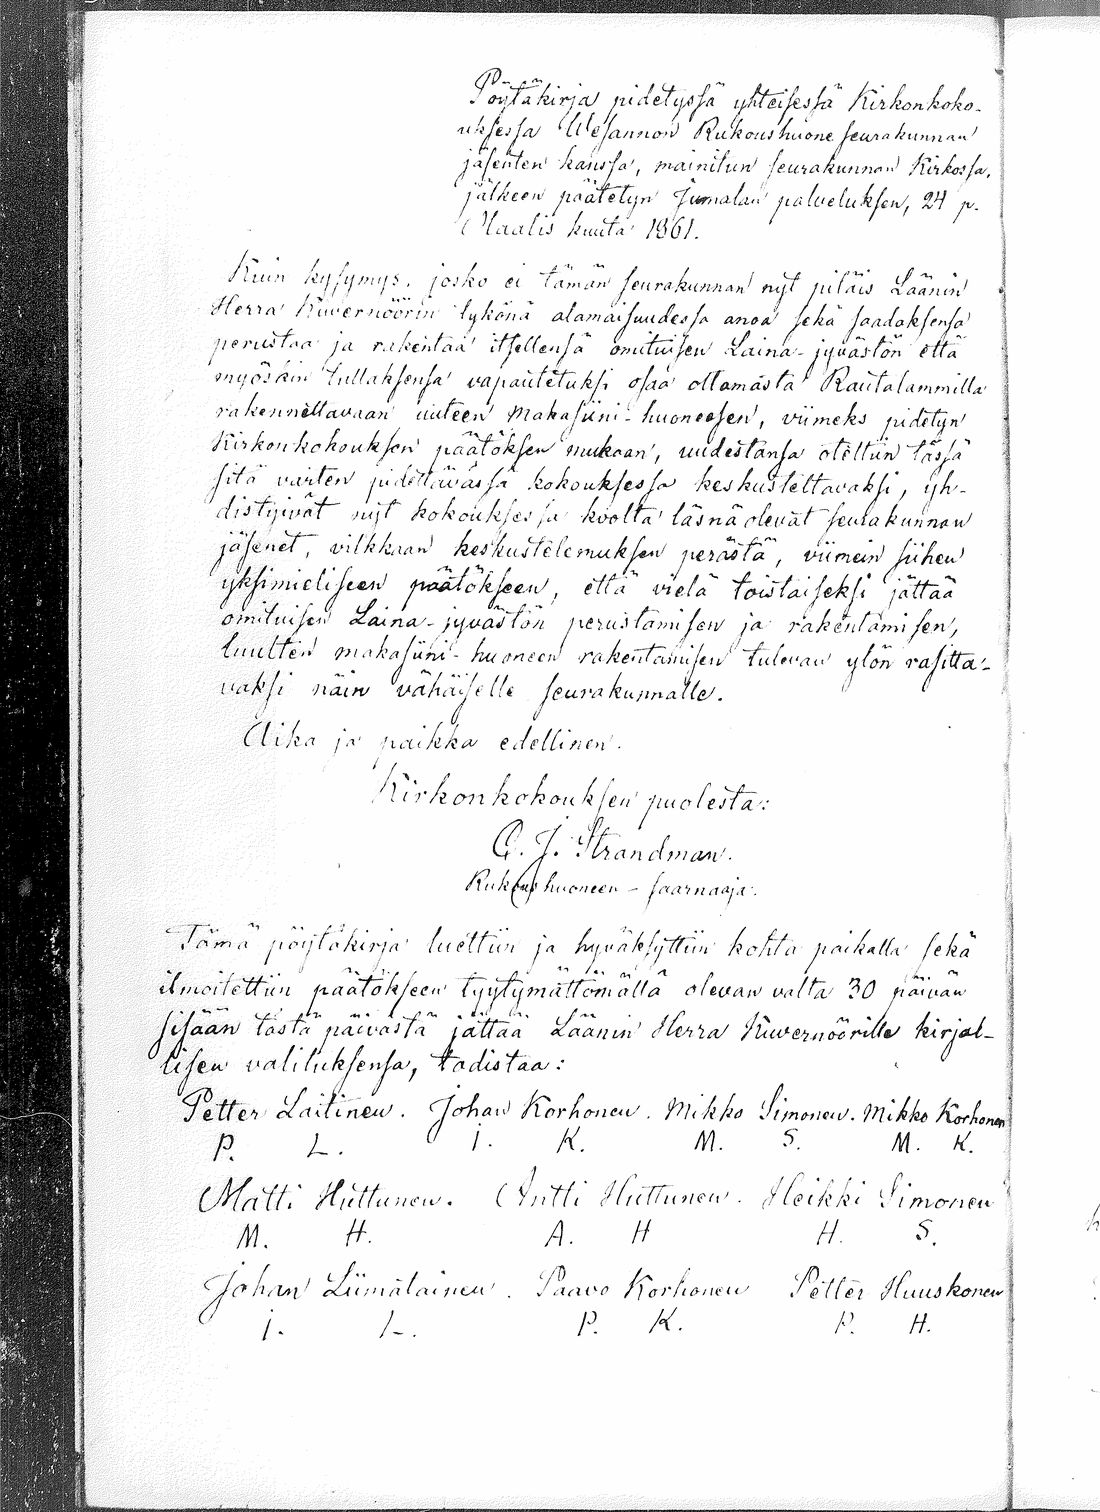 Pöytäkirja pidetyssä yhteisessä Kirkonkoko-
uksessa Wesannon Rukoushuone seurakunnan
jäsenten kanssa, mainitun seurakunnan Kirkossa,
jälkeen päätetyn Jumalan palveluksen, 24 p.
Maalis kuuta 1861.
Kuin kysymys, josko ei tämän seurakunnan nyt pitäis Läänin
Herra Kuvernöörin tykönä alamaisuudessa anoa sekä saadaksensa
perustaa ja rakentaa itsellensä omituisen Laina-jyvästön että
myöskin tullaksensa vapautetuksi osaa ottamasta Rautalammilla
rakennettavaan uuteen makasiini-huoneesen, viimeks pidetyn
Kirkonkokouksen päätöksen mukaan, uudestansa otettiin tässä
sitä varten pidettävässä kokouksessa keskusteltavaksi, yh-
distyivät nyt kokouksessa koolta läsnä olevat seurakunnan
jäsenet, vilkkaan keskustelemuksen perästä, viimein siihen
yksimieliseen päätökseen, että vielä toistaiseksi jättää
omituisen Laina-jyvästön perustamisen ja rakentamisen,
luulten makasiini-huoneen rakentamisen tulevan ylön rasitta-
vaksi näin vähäiselle seurakunnalle.
Aika ja paikka edellinen.
Kirkonkokouksen puolesta:
G. J. Strandman.
Rukoushuoneen - saarnaaja.
Tämä pöytäkirja luettiin ja hyväksyttiin kohta paikalla sekä
ilmoitettiin päätökseen tyytymättömällä olevan valta 30 päivän
sisään tästä päivästä jättää Läänin Herra Kuvernöörille kirjal-
lisen valituksensa, todistaa:
Petter Laitinen. Johan Korhonen. Mikko Simonen. Mikko Korhonen
P. L. I. K. M. S. M. K.
Matti Huttunen. Antti Huttunen. Heikki Simonen
M. H. A. H H. S.
Johan Liimatainen. Paavo Korhonen Petter Huuskonen
I. L. P. K. P. H.